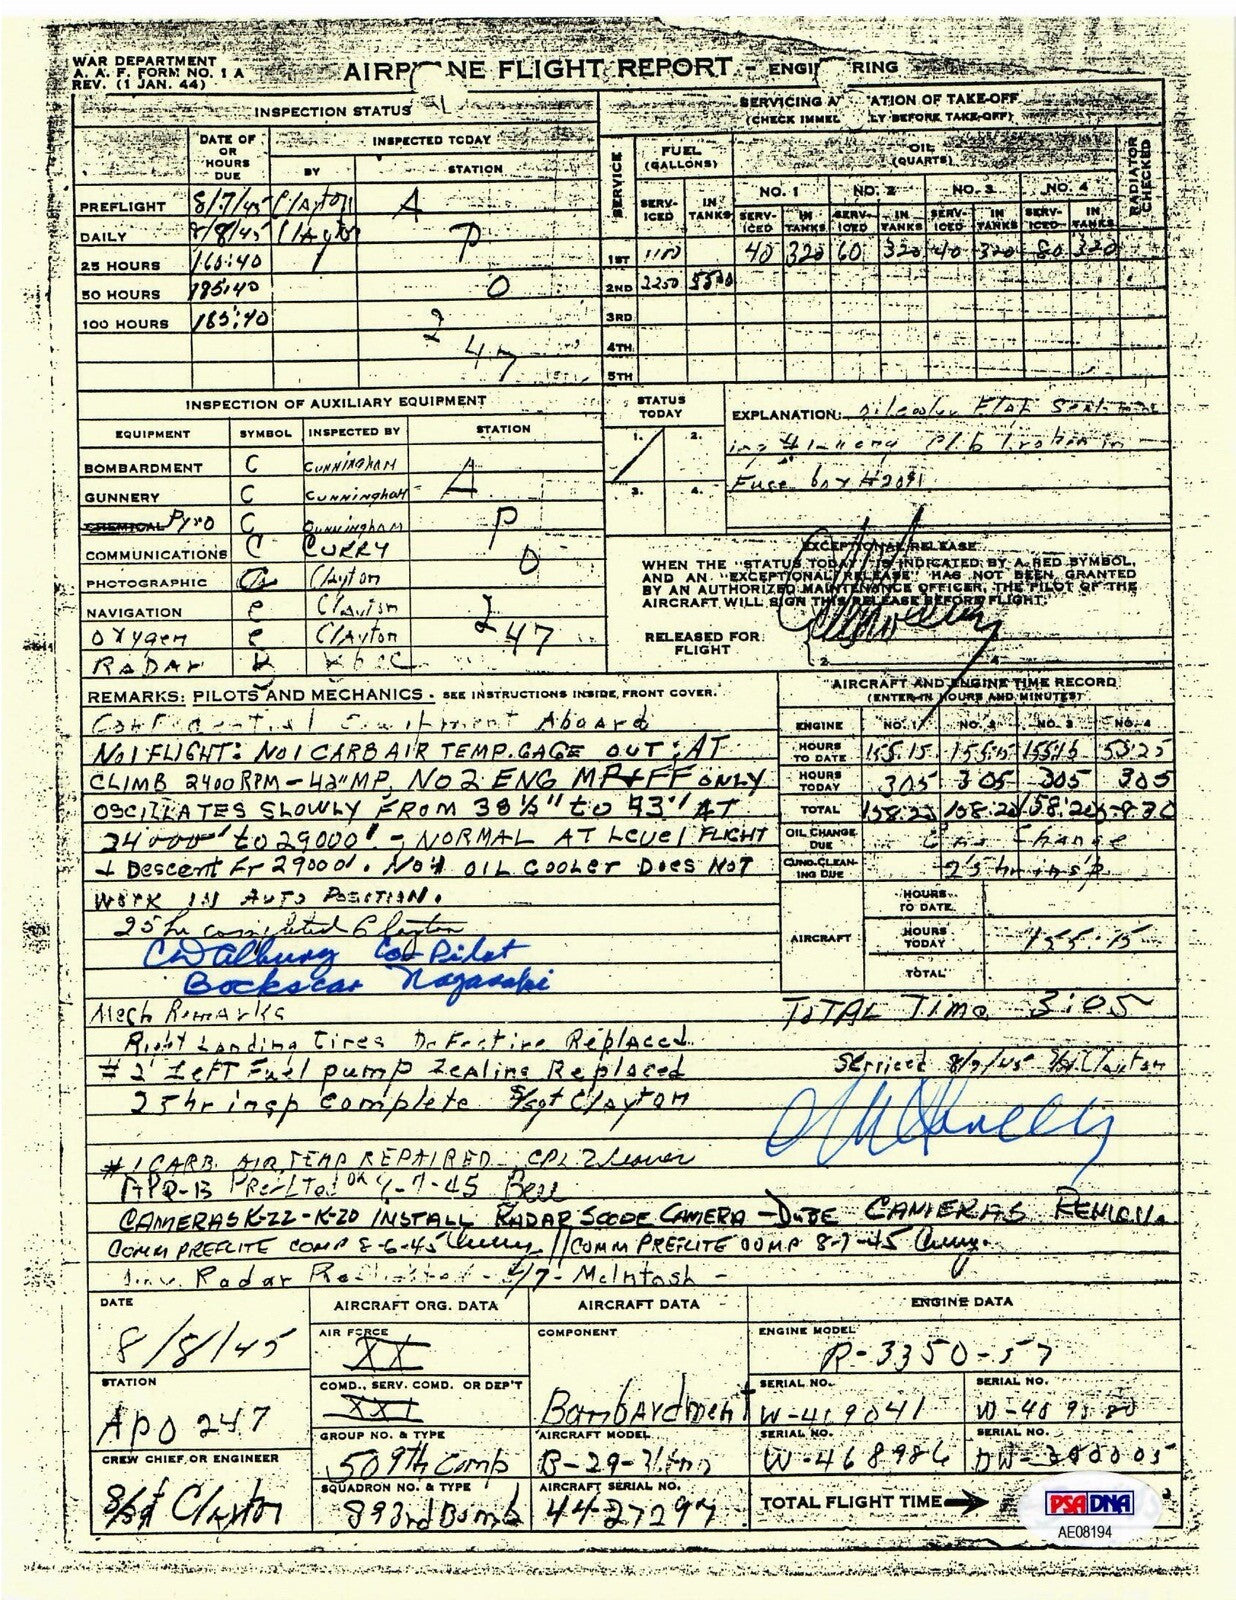 WAR DEPARTMENT
A. A. F. FORM NO. 1 A
REV. (1 JAN. 44)
AIRP NE FLIGHT REPORT - ENGI RING
INSPECTION STATUS
DATE OF OR HOURS DUE
INSPECTED TODAY
BY
STATION
PREFLIGHT 8/7/45 Clayton A
DAILY 8/8/45 Clayton P
25 HOURS 160:40
50 HOURS 185:40 O
100 HOURS 185:40 2
47
SERVICING A ATION OF TAKE-OFF
(CHECK IMME LY BEFORE TAKE-OFF)
SERVICE
FUEL (GALLONS)
OIL (QUARTS)
RADIATOR CHECKED
NO. 1 NO. 2 NO. 3 NO. 4
SERV-ICED IN TANKS SERV-ICED IN TANKS SERV-ICED IN TANKS SERV-ICED IN TANKS SERV-ICED IN TANKS
1ST 1100 40 320 60 320 40 320 80 320
2ND 2250 5500
3RD
4TH
5TH
INSPECTION OF AUXILIARY EQUIPMENT
EQUIPMENT SYMBOL INSPECTED BY STATION
BOMBARDMENT C CUNNINGHAM
GUNNERY C CUNNINGHAM A
CHEMICAL Pyro C CUNNINGHAM P
COMMUNICATIONS C CURRY O
PHOTOGRAPHIC C Clayton
NAVIGATION C
Oxygen C Clayton 247
RADAR
STATUS TODAY
1. 2.
3. 4.
EXPLANATION: Oilcooler Flap
Fuse box
EXCEPTIONAL RELEASE
WHEN THE "STATUS TODAY" IS INDICATED BY A RED SYMBOL,
AND AN "EXCEPTIONAL RELEASE" HAS NOT BEEN GRANTED
BY AN AUTHORIZED MAINTENANCE OFFICER, THE PILOT OF THE
AIRCRAFT WILL SIGN THIS RELEASE BEFORE FLIGHT.
RELEASED FOR FLIGHT
2. 4.
REMARKS: PILOTS AND MECHANICS - SEE INSTRUCTIONS INSIDE, FRONT COVER.
Confidential Equipment Aboard
NO1 FLIGHT: NO1 CARB AIR TEMP. GAGE OUT; AT
CLIMB 2400 RPM - 42" MP, NO 2 ENG MP + FF ONLY
OSCILLATES SLOWLY FROM 38½" to 43" AT
24000' to 29000' - NORMAL AT LEVEL FLIGHT
+ Descent Fr 29000'. NO 4 OIL COOLER DOES NOT
WORK IN AUTO POSITION.
25 hr completed Clayton
CD Albury Co-Pilot
Bockscar Nagasaki
AIRCRAFT AND ENGINE TIME RECORD
(ENTER IN HOURS AND MINUTES)
ENGINE NO. 1 NO. 2 NO. 3 NO. 4
HOURS TO DATE 155:15 155:15 155:15 53:25
HOURS TODAY 305 305 305 305
TOTAL 158:20 158:20 158:20
OIL CHANGE DUE
CUNO CLEANING DUE 25 hr insp
AIRCRAFT
HOURS TO DATE
HOURS TODAY 155:15
TOTAL
TOTAL Time 3:05
Mech Remarks
Right Landing Tires Defective Replaced
#2 Left Fuel pump Replaced
25 hr insp complete S/sgt Clayton
Serviced 8/7/45 Clayton
#1 CARB. AIR, TEMP REPAIRED CPL
APQ-13
CAMERAS K-22 - K-20 INSTALL RADAR SCOPE CAMERA - CAMERAS
COMM PREFLITE COMP 8-6-45 Curry // COMM PREFLITE COMP 8-7-45 Curry
Radar 8/7 - McIntosh -
DATE
8/8/45
STATION
APO 247
CREW CHIEF OR ENGINEER
S/Sgt Clayton
AIRCRAFT ORG. DATA
AIR FORCE
XX
COMD., SERV. COMD. OR DEP'T
XXI
GROUP NO. & TYPE
509th Comp
SQUADRON NO. & TYPE
393rd Bomb
AIRCRAFT DATA
COMPONENT
Bombardment
AIRCRAFT MODEL
B-29-
AIRCRAFT SERIAL NO.
44-27297
ENGINE DATA
ENGINE MODEL
R-3350-57
SERIAL NO.
W-469041
SERIAL NO.
SERIAL NO.
W-468986
SERIAL NO.
TOTAL FLIGHT TIME
PSA DNA
AE08194